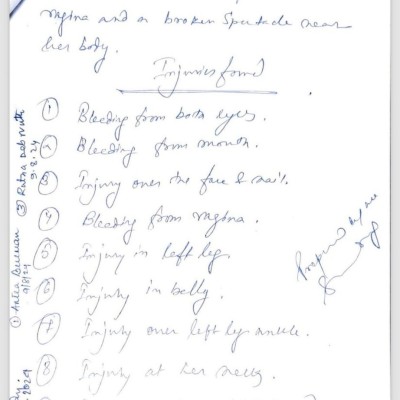 vagina and a broken Spectacle near
her body.
Injuries found
① Bleeding from both eyes.
② Bleeding from mouth.
③ Injury over the face & nail.
④ Bleeding from vagina.
⑤ Injury in left leg.
⑥ Injury in belly.
⑦ Injury over left leg ankle.
⑧ Injury at her neck.
Prepared by me
9/8/24
9.8.24
2024